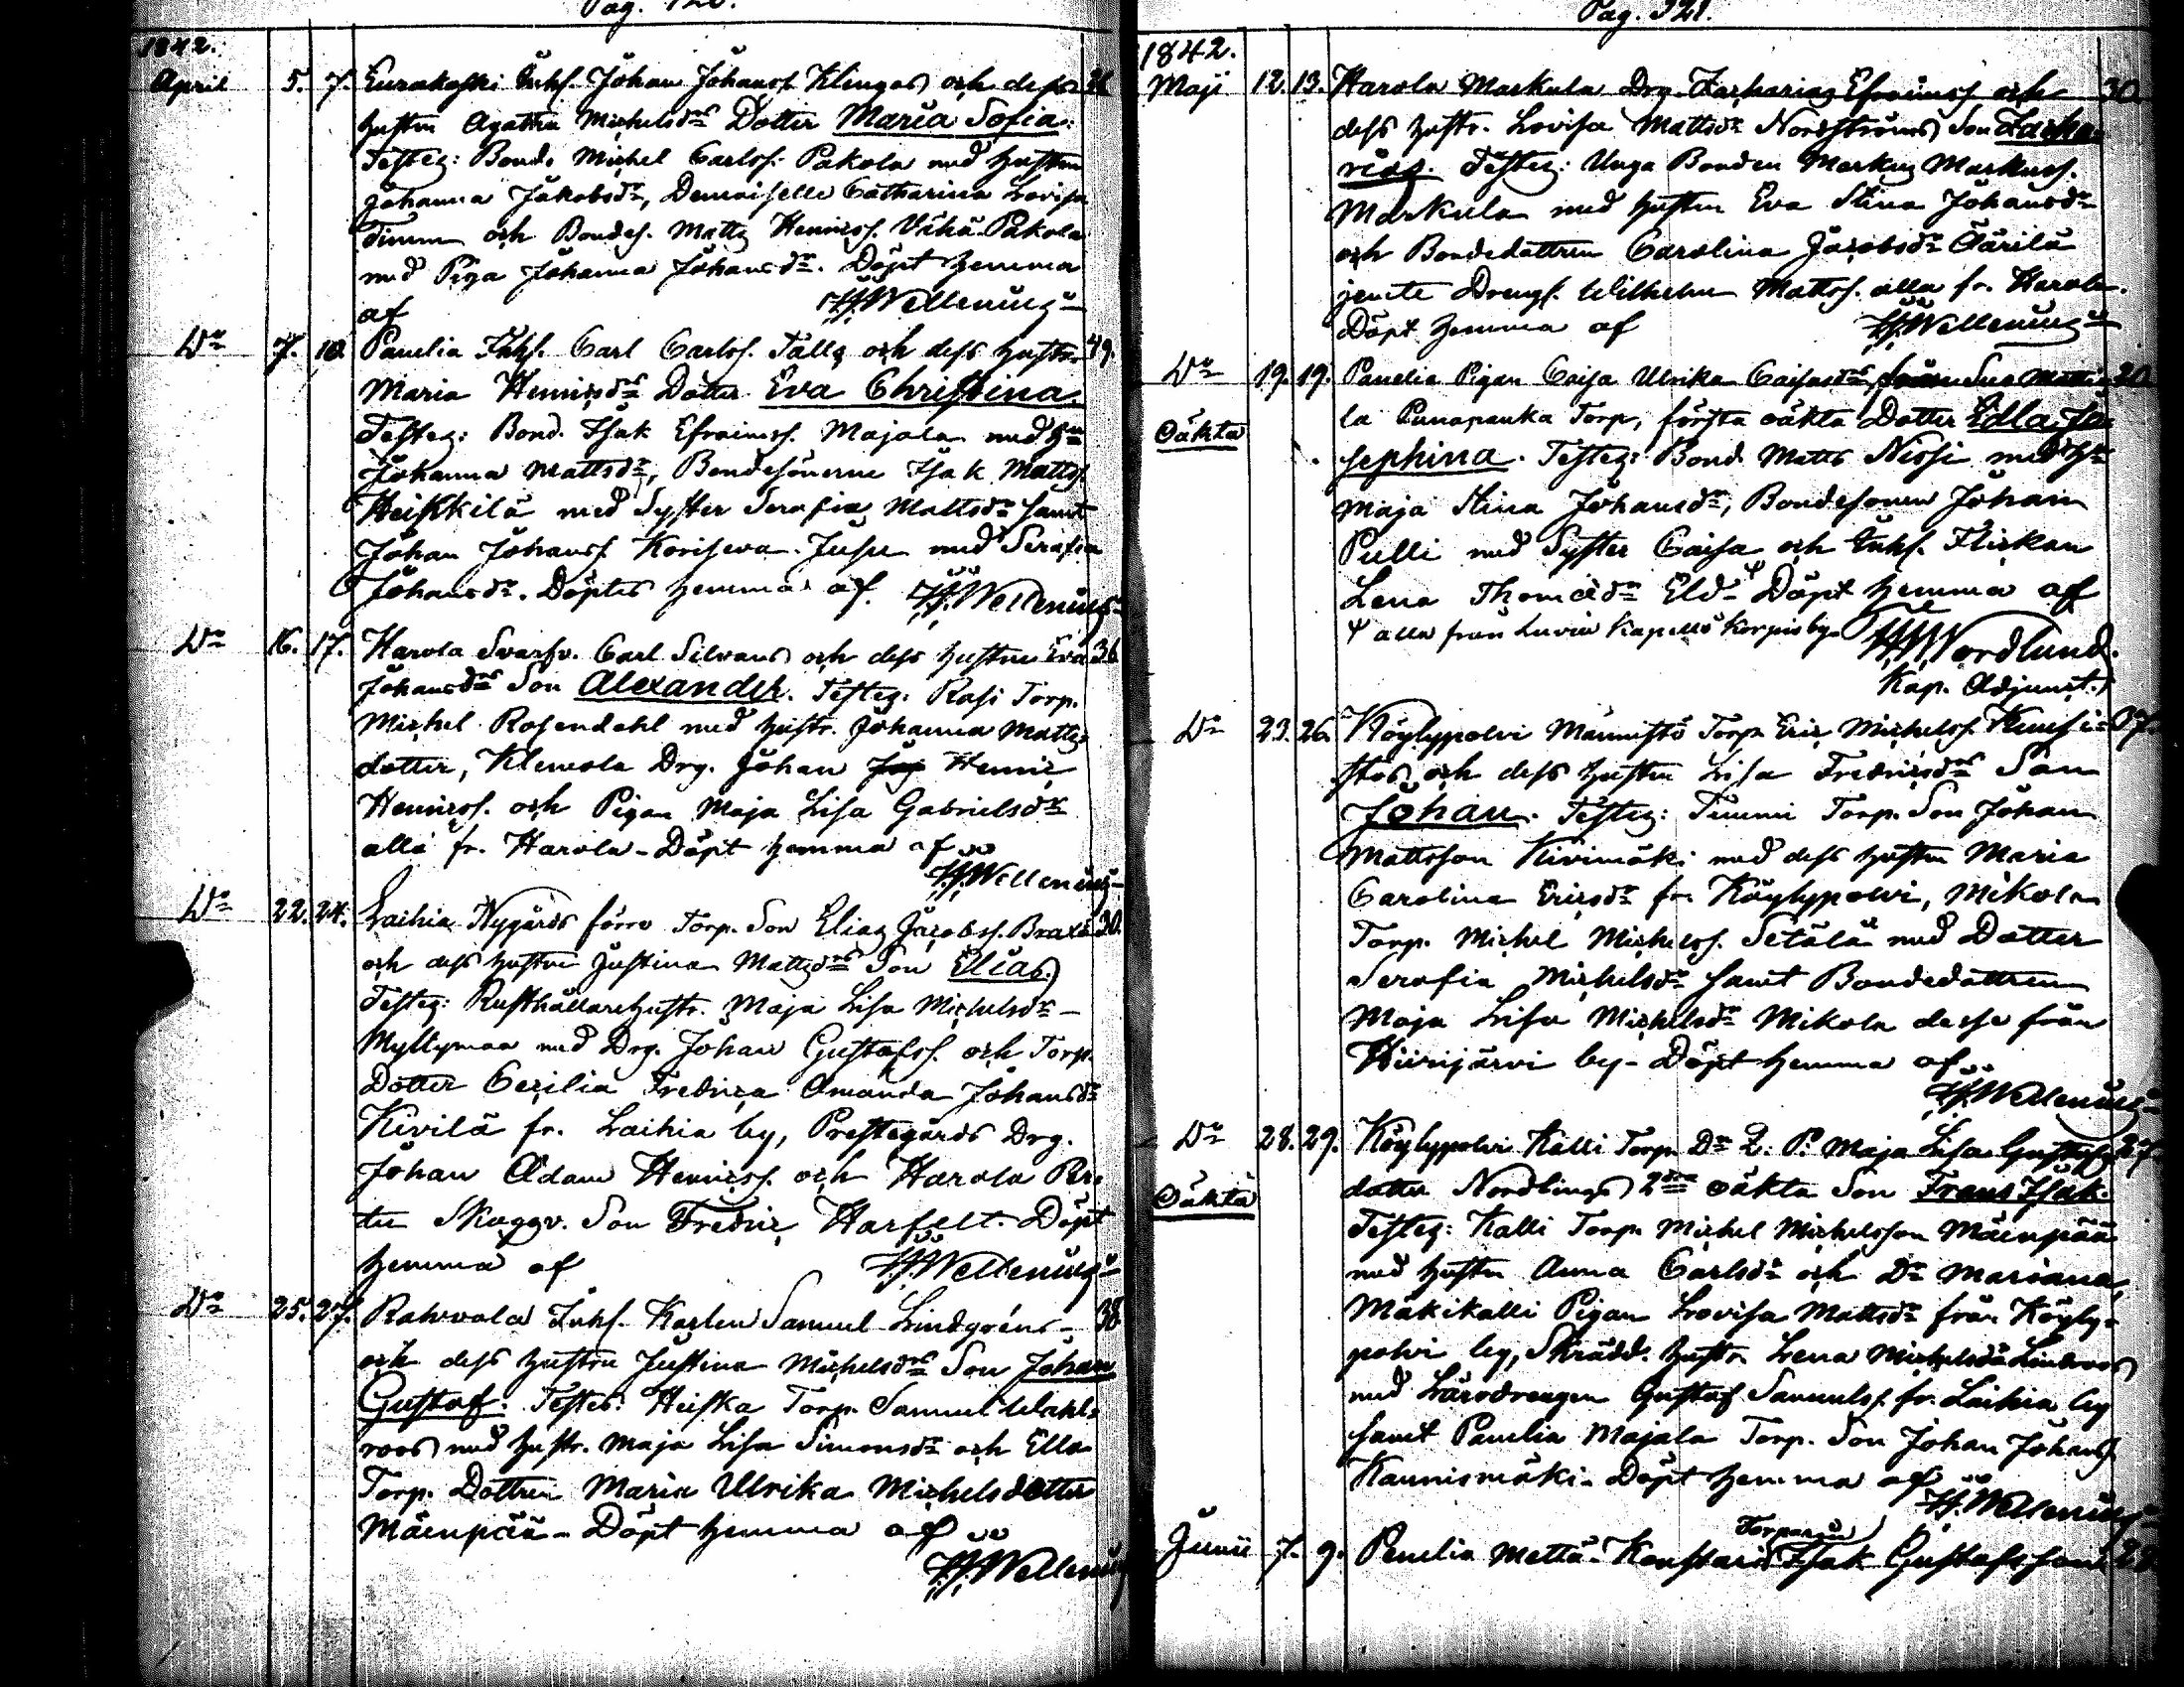 1842.
April 5. 7. Eurakoski Inhs. Johan Johanss. Klingas och dess
hustru Agatha Michelsdrs Dotter Maria Sofia.
Testes: Bond. Michel Carlss. Pakola med hustru
Johanna Jakobsdr, Demoiselle Catharina Lovisa
Timm och Bondes. Matts Henricss. Vähä-Pakola
med Piga Johanna Johansdr. Döpt hemma
af H.J. Wellenius
Do 7. 10. Panelia Inhs. Carl Carlss. Fälls och dess hustru 49.
Maria Henricsdrs Dotter Eva Christina.
Testes: Bond. Isak Efraimss. Majala med Hu
Johanna Mattsdr, Bondesönerne Isak Mattss.
Heikkilä med Syster Serafia Mattsdr samt
Johan Johanss. med Serafia
Johansdr. Döptes hemma af H.J. Wellenius
Do 16. 17. Harola Svarfv. Carl Silvans och dess hustru Eva 36
Johansdrs Son Alexander. Testes: Rasi Torp.
Michel Rosendahl med hustr. Johanna Matts
dotter, Klemola Drg. Johan Henric
Henricss. och Pigan Maja Lisa Gabrielsdr
alla fr. Harola - Döpt hemma af
H.J. Wellenius
Do 22. 24. Laihia Nygårds förre Torp. Son Elias Jacobss. Brax 30.
och dess hustru Justina Mattsdrs Son Elias.
Testes: Rusthållarehustr. Maja Lisa Michelsdr
Myllymaa med Drg. Johan Gustafss. och Torp.
Dotter Cecilia Fredrica Amanda Johansdr
Kivilä fr. Laihia by, Prestegårds Drg.
Johan Adam Henricss. och Harola
Skoggv. Son Fredric Harfelt. Döpt
hemma af H.J. Wellenius
Do 25. 27. Rahvola Inhs. Karlen Samuel Lindgréns 38
och dess hustru Justina Michelsdrs Son Johan
Gustaf. Testes: Heiska Torp. Samuel Wahl-
roos med hustr. Maja Lisa Simonsdr och Ella
Torp. Dottren Maria Ulrika Michelsdotter
Mäenpää - Döpt hemma af
H.J. Wellenius
Pag. 321.
1842.
Maji 12. 13. Harola Markula Drg. Zacharias Efraimss. och 30.
dess hustr. Lovisa Mattsdr Nordströms Son Zacha-
rias. Testes: Unga Bonden Markus Markuss.
Markula med hustru Eva Stina Johansdr
och Bondedottren Carolina Jacobsdr Äärilä
jemte Drengs. Wilhelm Mattss. alla fr. Harola.
Döpt hemma af H.J. Wellenius
Do 19. 19. Panelia Pigan Caisa Ulrika Caisasdrs från Matti- 20
la Punapauka Torp, första oäkta Dotter Edla Jo-
Oäkta
sephina. Testes: Bond. Matts Nissi med Hu
Maja Stina Johansdr, Bondesonen Johan
Pulli med Syster Caisa och Inhs. Flickan
Lena Thomasdr Eld Döpt hemma af
alla från Luvia Kapells Korpisby
Nordlund.
Kap. Adjunct.
Do 23. 26. Köylypolvi Männistö Torp. Eric Michelss. 37.
och dess hustru Lisa Fredricsdrs Son
Johan. Testes: Timmi Torp. Son Johan
Mattsson Kivimäki med dess hustru Maria
Carolina Ericsdr fr. Köylypolvi, Mikola
Torp. Michel Michelss. Setälä med Dotter
Serafia Michelsdr samt Bondedottren
Maja Lisa Michelsdr Mikola desse från
Kiirijärvi by - Döpt hemma af
H.J. Wellenius
Do 28. 29. Köylypolvi Kalli Torp. Dr L. P. Maja Lisa Gustafs 27.
dotter Nordlings 2dra oäkta Son Frans Isak.
Oäkta
Testes: Kalli Torp. Michel Michelsson Mäenpää
med hustru Anna Carlsdr och Dr Mariana,
Mäkikalli Pigan Lovisa Mattsdr från Köyly-
polvi by, Skrädd. hustr. Lena Michelsdr Lindroos
med Lärodrengen Gustaf Samuelss. fr. Laihia by
samt Panelia Majala Torp. Son Johan Johanss.
Kaunismäki - Döpt hemma af
H.J. Wellenius
Junii 7. 9. Penelia Mettä-Konstari Torparen Isak Gustafssons